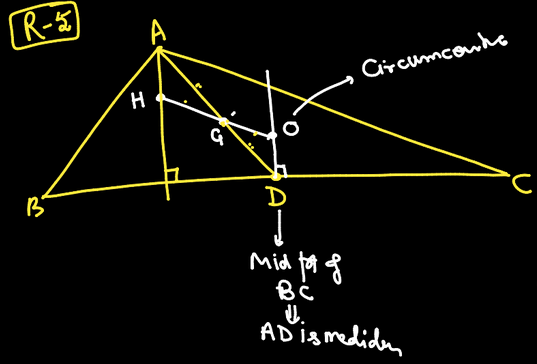 R-5
A
Circumcentre
H
G
O
B
D
C
Mid pt of
BC
AD is median